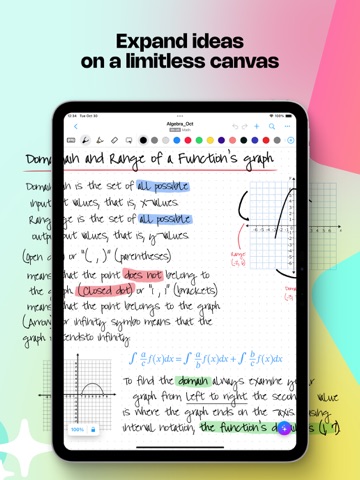 Expand ideas
on a limitless canvas
12:24 Tue Oct 30
100%
Algebra_Oct
Math
Domain and Range of a function's graph
Domain is the set of all possible
input values, that is, x-values
Range is the set of all possible
output values, that is, y-values
(Open dot or "( , )" (parentheses)
means that the point does not belong to
the graph (closed dot) or "[ , ]" (brackets)
means that the point belongs to the graph
(Arrow or infinity symbol means that the
graph extends to infinity
Range
∫ a/c f(x)dx = ∫ a/b f(x)dx + ∫ b/c f(x)dx
To find the domain always examine your
graph from left to right the second value
is where the graph ends on the axis. Using
interval notation, the function's domain is
100%